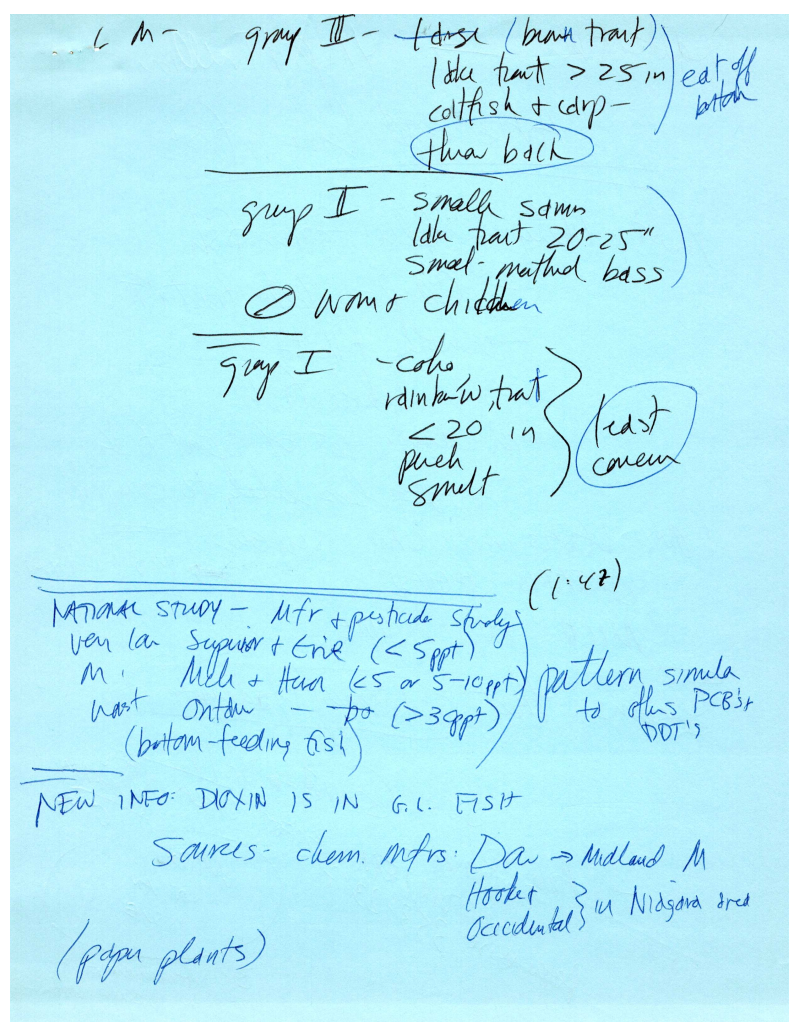 L M - group III - large (brown trout)
lake trout > 25 in
catfish + carp -
eat off
bottom
throw back
group II - small samn
lake trout 20-25"
small-mouthed bass
∅ wom + children
group I - coho,
rainbow, trout
< 20 in
perch
smelt
least
concern
(1:47)
NATIONAL STUDY - Mfr + pesticide study
very low Superior + Erie (< 5 ppt)
M. Mich + Huron (<5 or 5-10 ppt)
worst Ontario - (>30 ppt)
(bottom-feeding fish)
pattern similar
to others PCB's +
DDT's
NEW INFO: DIOXIN IS IN G.L. FISH
Sources - chem. mfrs: Dow → Midland M
Hooker
Occidental } in Niagara area
(paper plants)